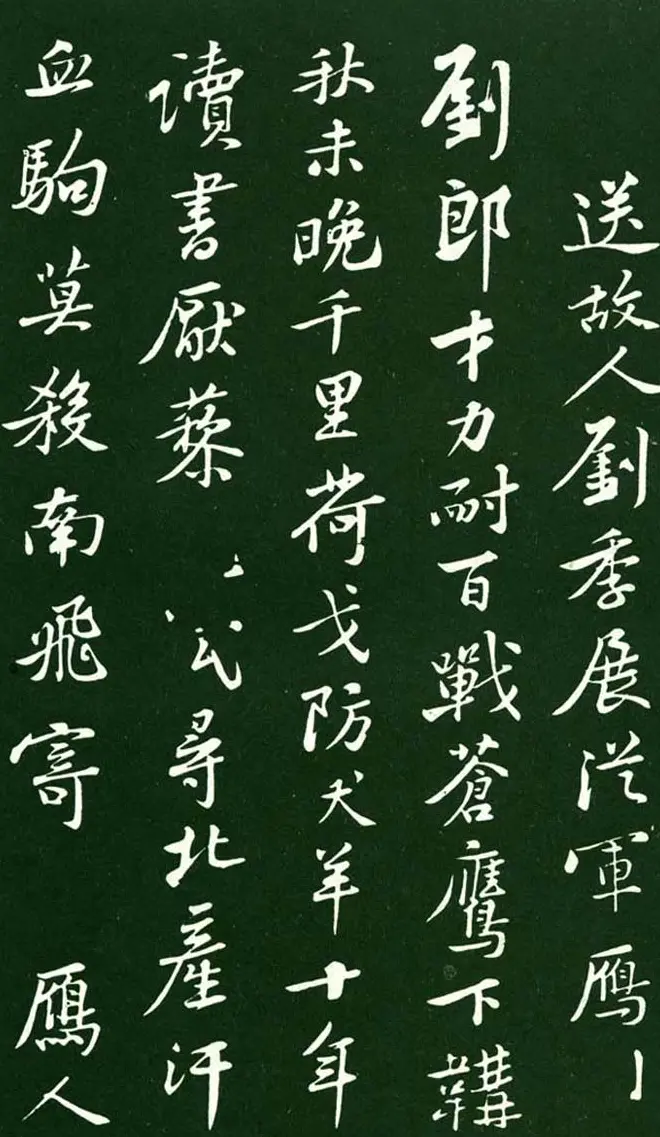 送故人劉季展從軍鴈
劉郎才力耐百戰蒼鷹下鞲
秋未晚千里荷戈防犬羊十年
讀書厭藜尋北產汗
血駒莫殺南飛寄鴈人